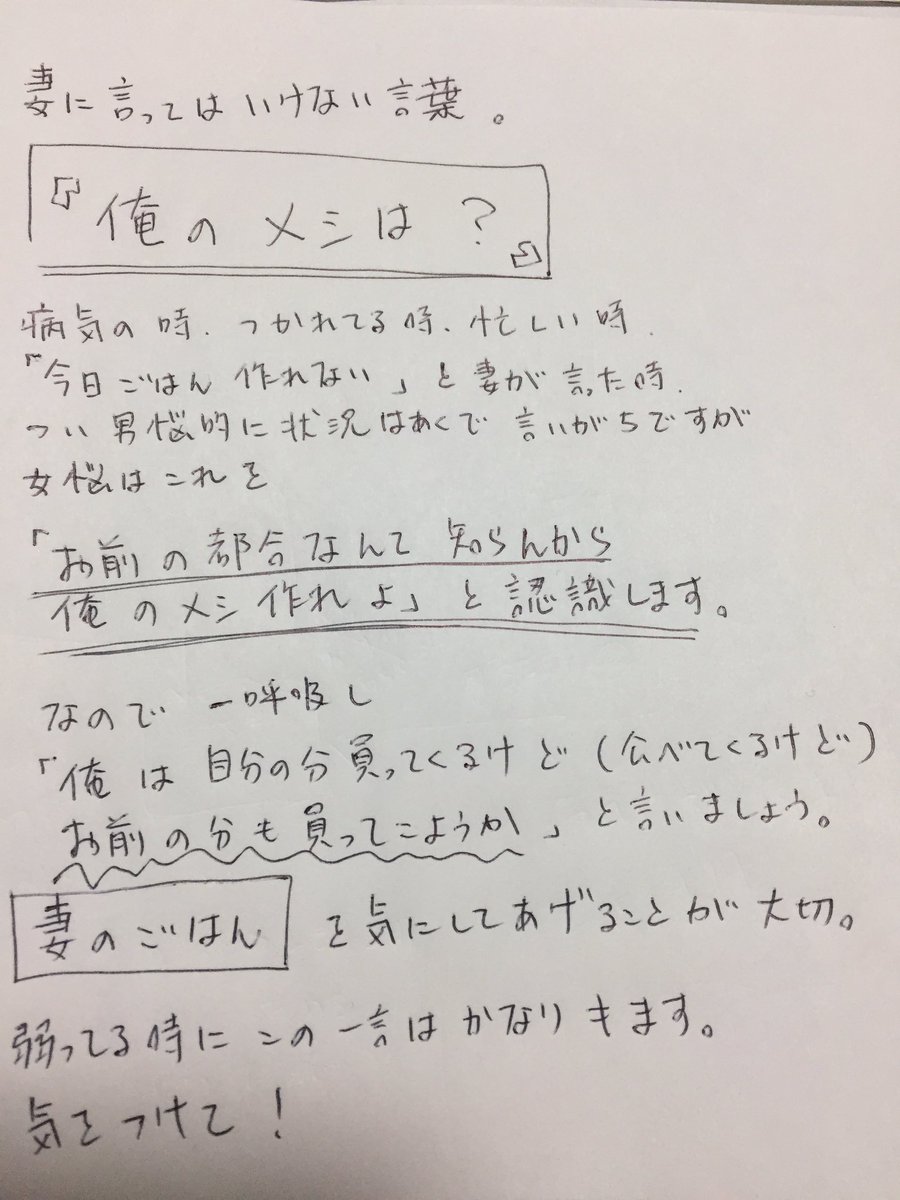 妻に言ってはいけない言葉。
『俺のメシは？』
病気の時、つかれてる時、忙しい時、
「今日ごはん作れない」と妻が言った時、
つい男悩的に状況はあくで言いがちですが
女悩はこれを
「お前の都合なんて知らんから
俺のメシ作れよ」と認識します。
なので一呼吸し
「俺は自分の分買ってくるけど(食べてくるけど)
お前の分も買ってこようか」と言いましょう。
妻のごはんを気にしてあげることが大切。
弱ってる時にこの一言はかなりキます。
気をつけて！